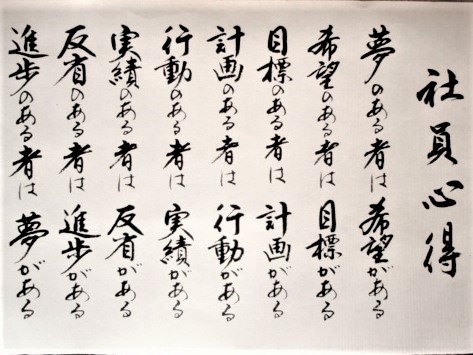 社員心得
夢のある者は希望がある
希望のある者は目標がある
目標のある者は計画がある
計画のある者は行動がある
行動のある者は実績がある
実績のある者は反省がある
反省のある者は進歩がある
進歩のある者は夢がある